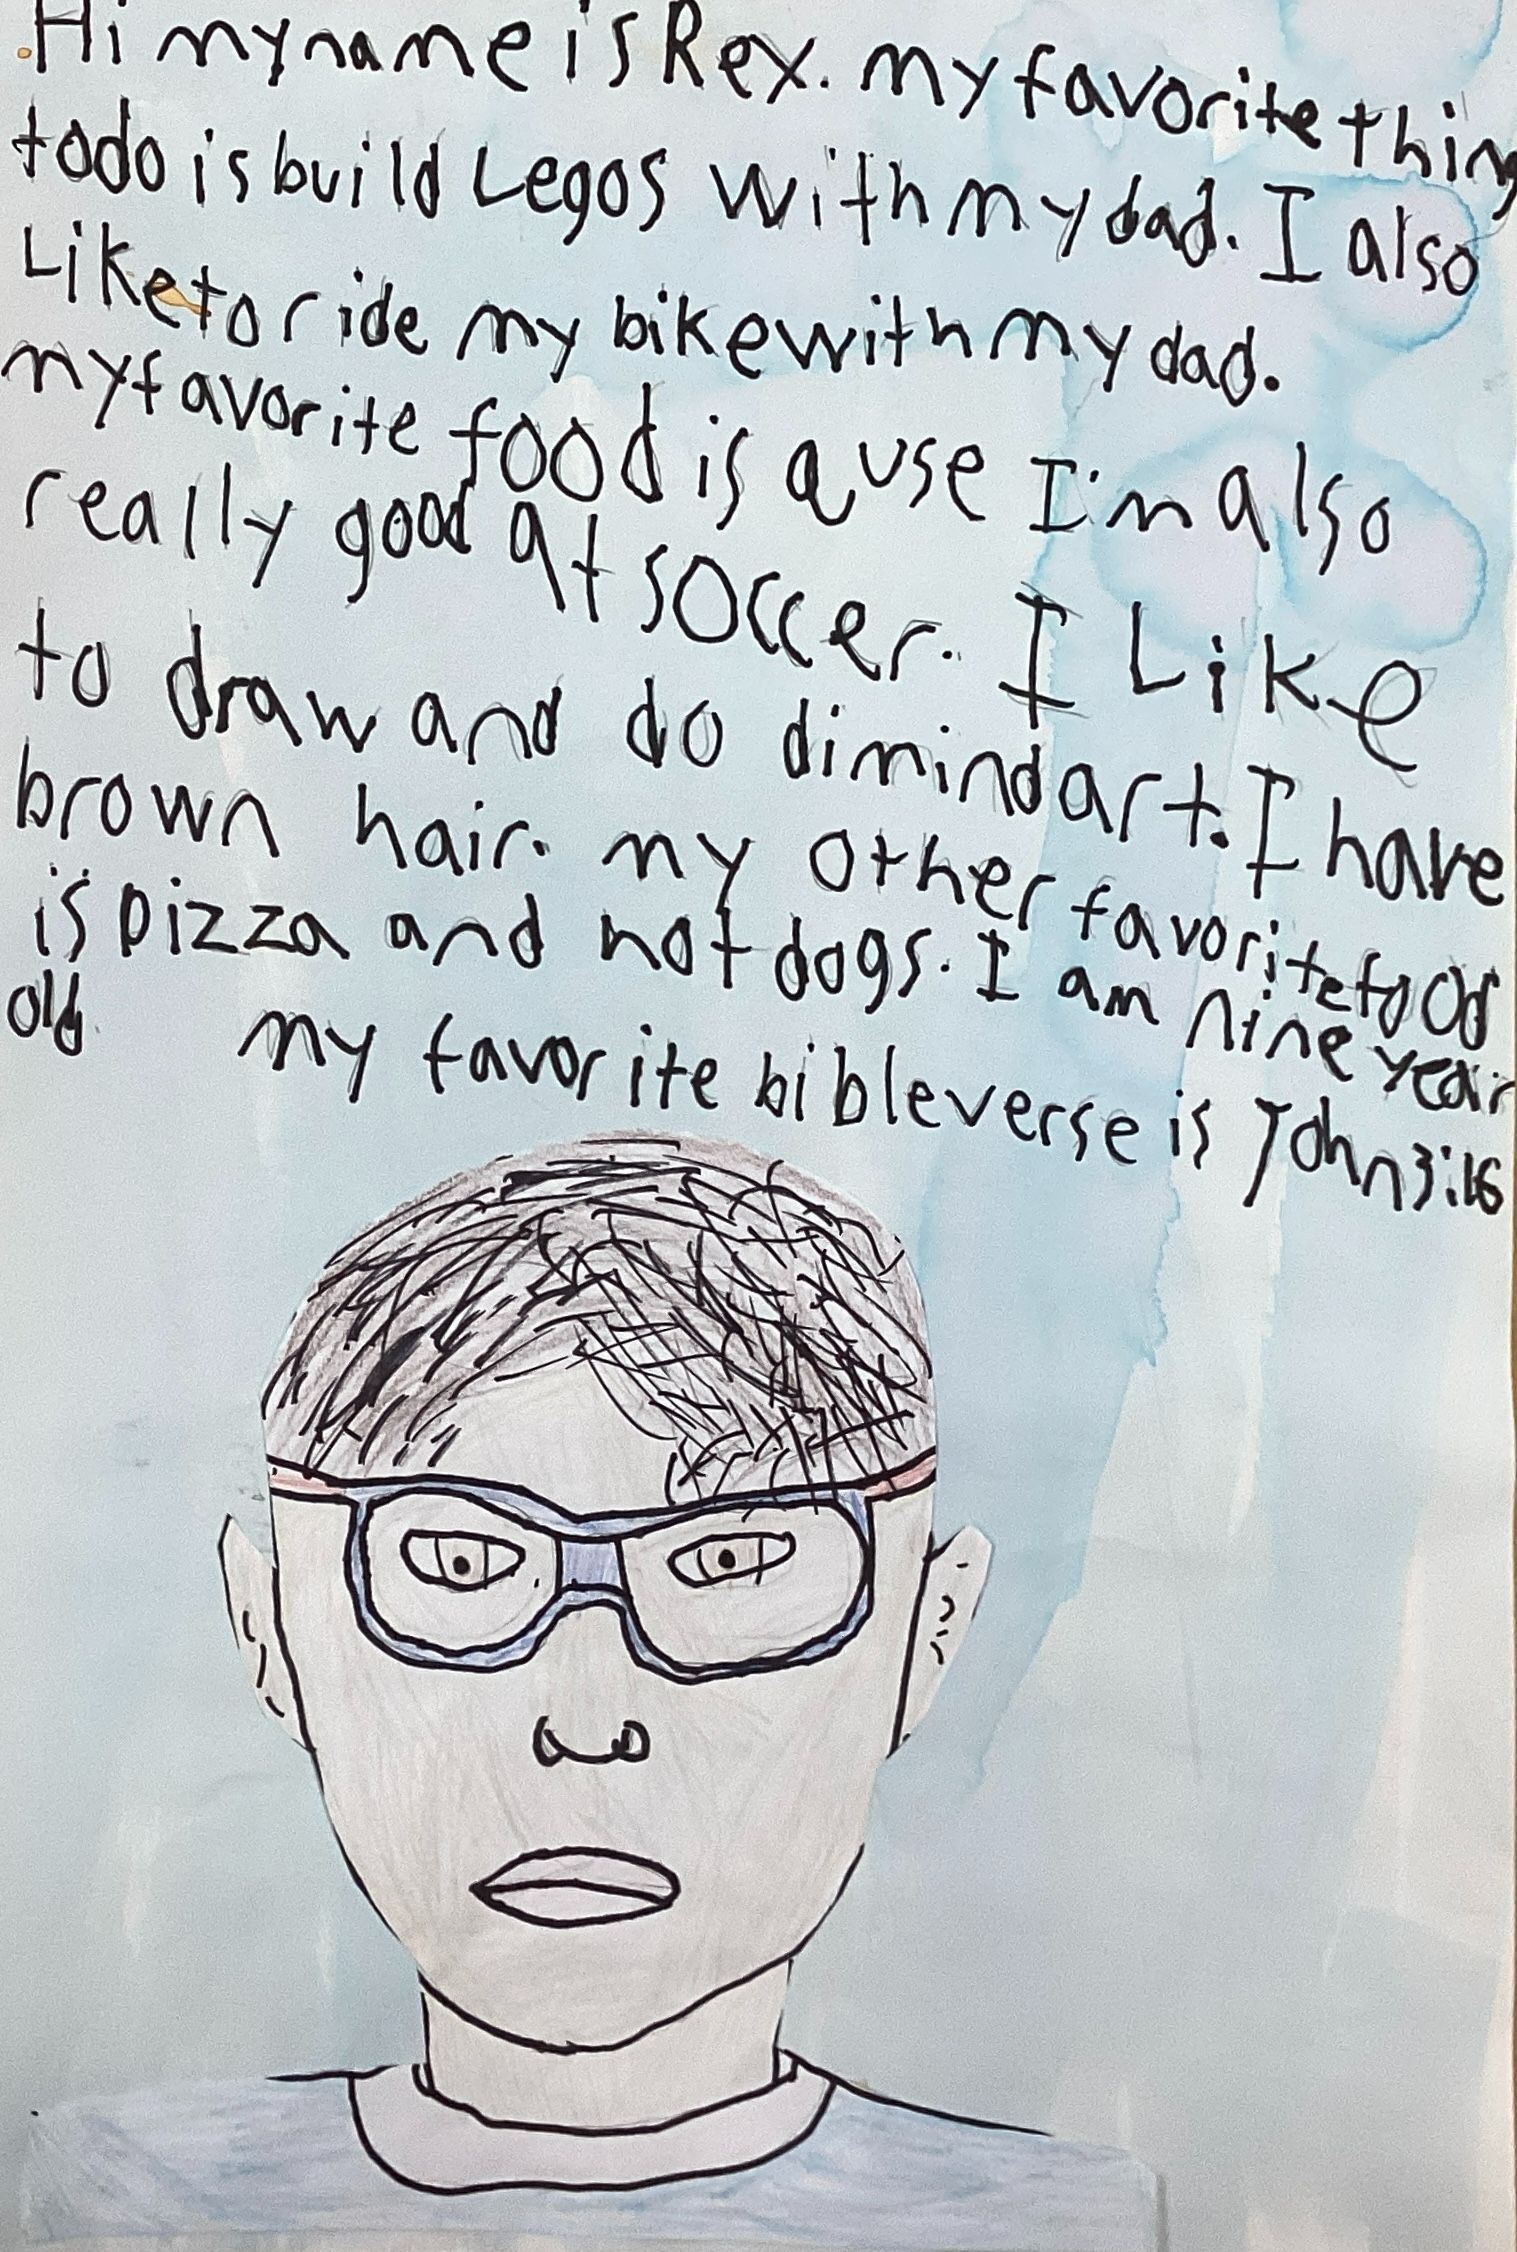 Hi my name is Rex. my favorite thing
todo is build Legos with my dad. I also
Like to ride my bike with my dad.
my favorite food is quse I'm also
really good at soccer. I Like
to draw and do dimind art. I have
brown hair. my other favorite food
is pizza and hot dogs. I am nine year
old. my favorite bible verse is John 3:16